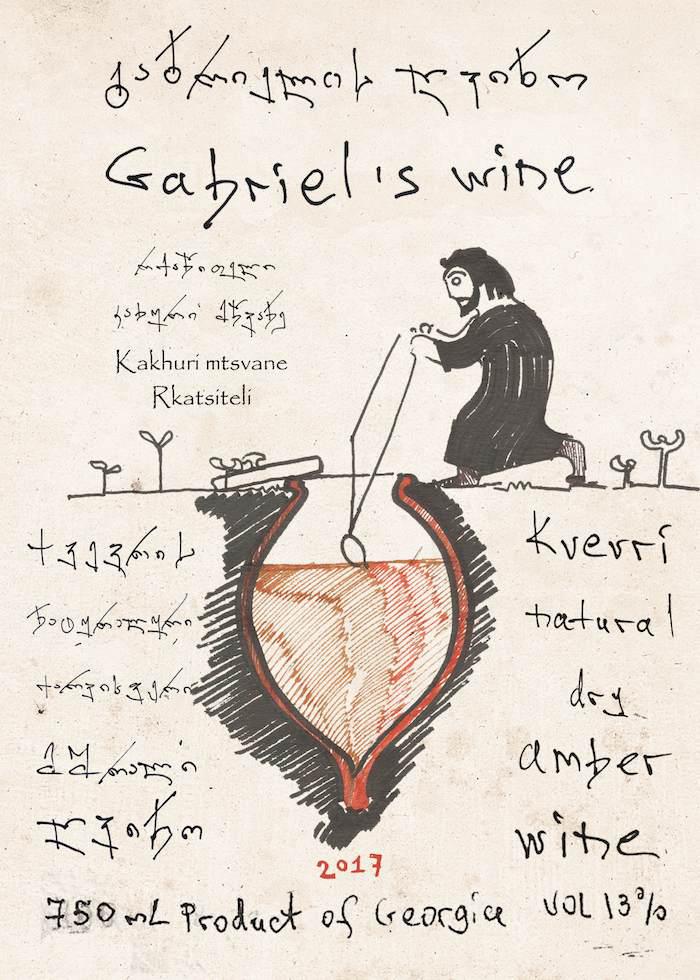 გაბრიელის ღვინო
Gabriel's wine
რქაწითელი
კახური მწვანე
Kakhuri mtsvane
Rkatsiteli
ქვევრის
ნატურალური
ქარვისფერი
მშრალი
ღვინო
Kvevri
natural
dry
amber
wine
2017
750 mL Product of Georgia VOL 13%